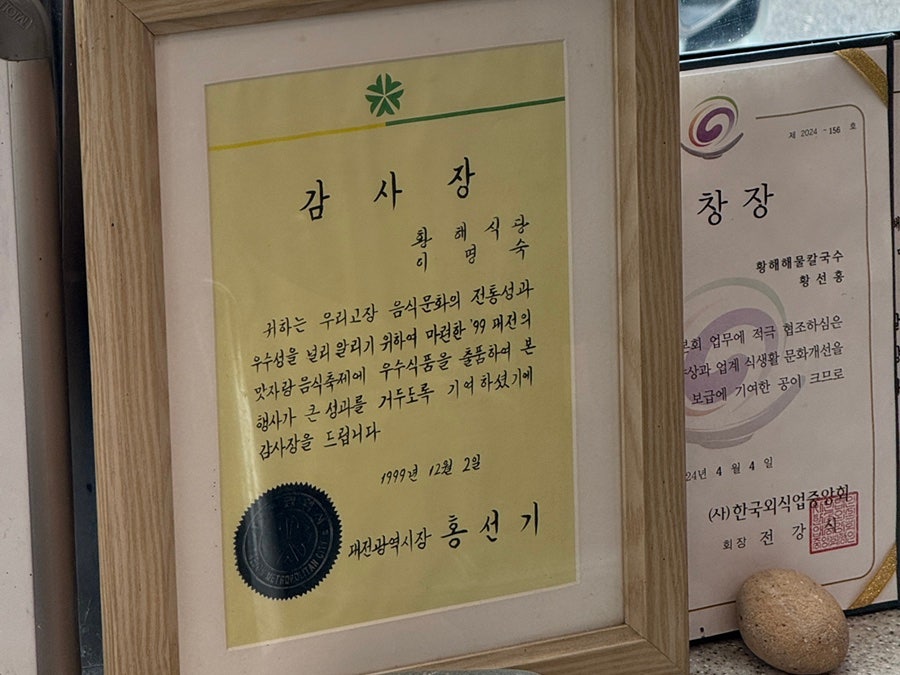 감 사 장
황 해 식 당
이 명 숙
귀하는 우리고장 음식문화의 전통성과
우수성을 널리 알리기 위하여 마련한 '99 대전의
맛자랑 음식축제에 우수식품을 출품하여 본
행사가 큰 성과를 거두도록 기여 하셨기에
감사장을 드립니다
1999년 12월 2일
대전광역시장 홍 선 기
METROPOLITAN
제 2024 - 156 호
창 장
황해해물칼국수
황 선 홍
본회 업무에 적극 협조하심은
업계 식생활 문화개선을
보급에 기여한 공이 크므로
24년 4 월 4 일
(사)한국외식업중앙회
회장 전 강 식